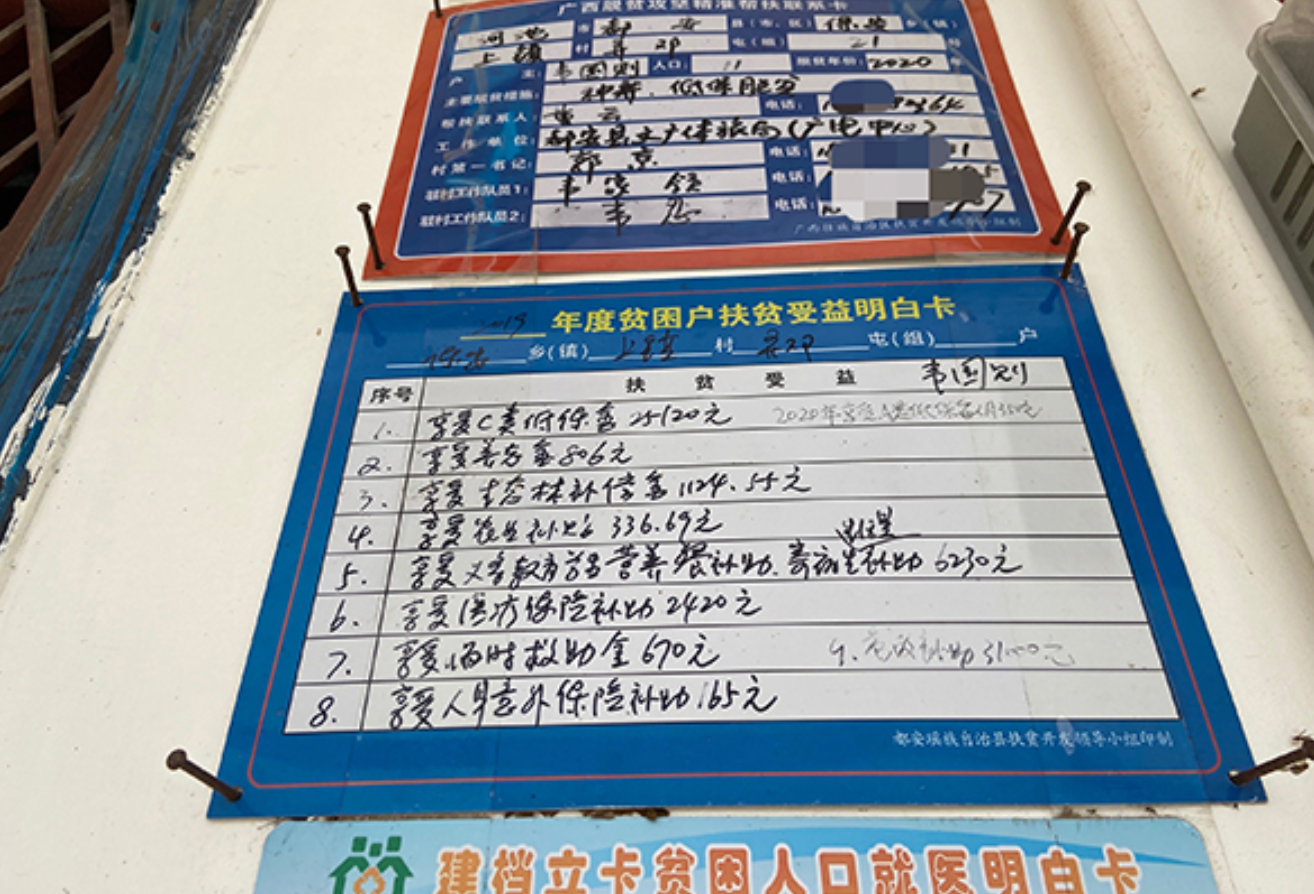 广西脱贫攻坚精准帮扶联系卡
河池 市 都安 县(市、区) 保安 乡(镇)
上镇 村 弄 屯(组) 21 号
户主: 韦国则 人口: 11 脱贫年份: 2020 年
主要脱贫措施: 种养、低保脱贫
帮扶联系人: 黄云 电话:
工作单位: 都安县文广体旅局(广电中心)
村第一书记: 郭京 电话:
驻村工作队员1: 韦家领 电话:
驻村工作队员2: 韦 电话:
广西壮族自治区扶贫开发领导小组制
2019年度贫困户扶贫受益明白卡
保安乡(镇) 上镇村 弄屯(组) 户
序号 扶贫受益 韦国则
1. 享受C类低保金25120元 2020年享受A类低保金
2. 享受养老金806元
3. 享受生态林补偿金1124.55元
4. 享受农业补贴336.69元
5. 享受义务教育 营养餐补助、寄宿生补助6230元
6. 享受医疗保险补助2420元
7. 享受临时救助金670元 9. 危改补助
8. 享受人身意外保险补助165元
都安瑶族自治县扶贫开发领导小组印制
建档立卡贫困人口就医明白卡